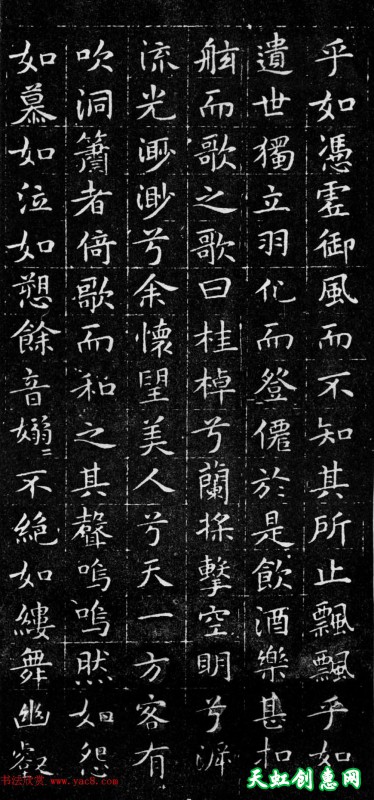 乎如憑虛御風而不知其所止飄飄乎如
遺世獨立羽化而登僊於是飲酒樂甚扣
舷而歌之歌曰桂棹兮蘭槳擊空明兮泝
流光渺渺兮余懷望美人兮天一方客有
吹洞簫者倚歌而和之其聲嗚嗚然如怨
如慕如泣如愬餘音嫋〻不絕如縷舞幽壑
书法欣赏 www.yac8.com
天虹创惠网